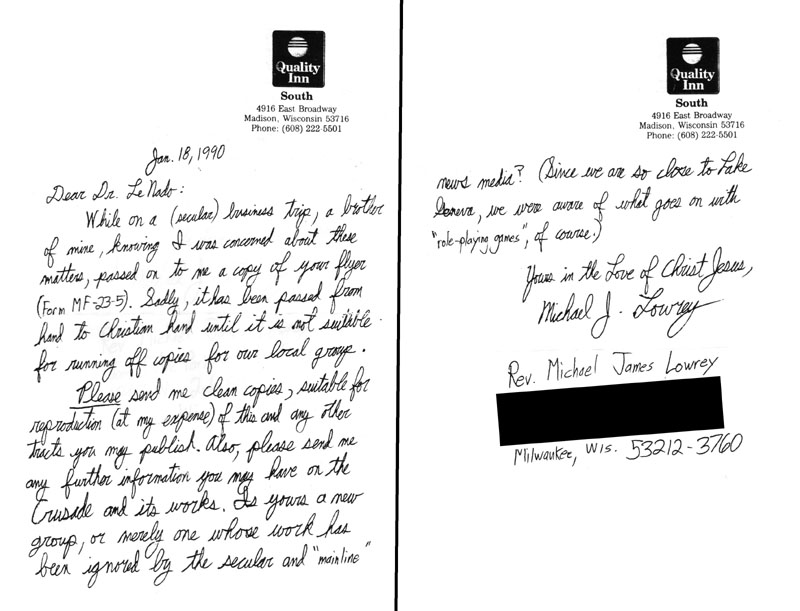 Quality
Inn
South
4916 East Broadway
Madison, Wisconsin 53716
Phone: (608) 222-5501
Jan. 18, 1990
Dear Dr. Le Nado:
While on a (secular) business trip, a brother
of mine, knowing I was concerned about these
matters, passed on to me a copy of your flyer
(Form MF-23-5). Sadly, it has been passed from
hand to Christian hand until it is not suitable
for running off copies for our local group.
Please send me clean copies, suitable for
reproduction (at my expense) of this and any other
tracts you may publish. Also, please send me
any further information you may have on the
Crusade and its works. Is yours a new
group, or merely one whose work has
been ignored by the secular and "mainline"
Quality
Inn
South
4916 East Broadway
Madison, Wisconsin 53716
Phone: (608) 222-5501
news media? (Since we are so close to Lake
Geneva, we were aware of what goes on with
"role-playing games", of course.)
Yours in the Love of Christ Jesus,
Michael J. Lowrey
Rev. Michael James Lowrey
Milwaukee, Wis. 53212-3760